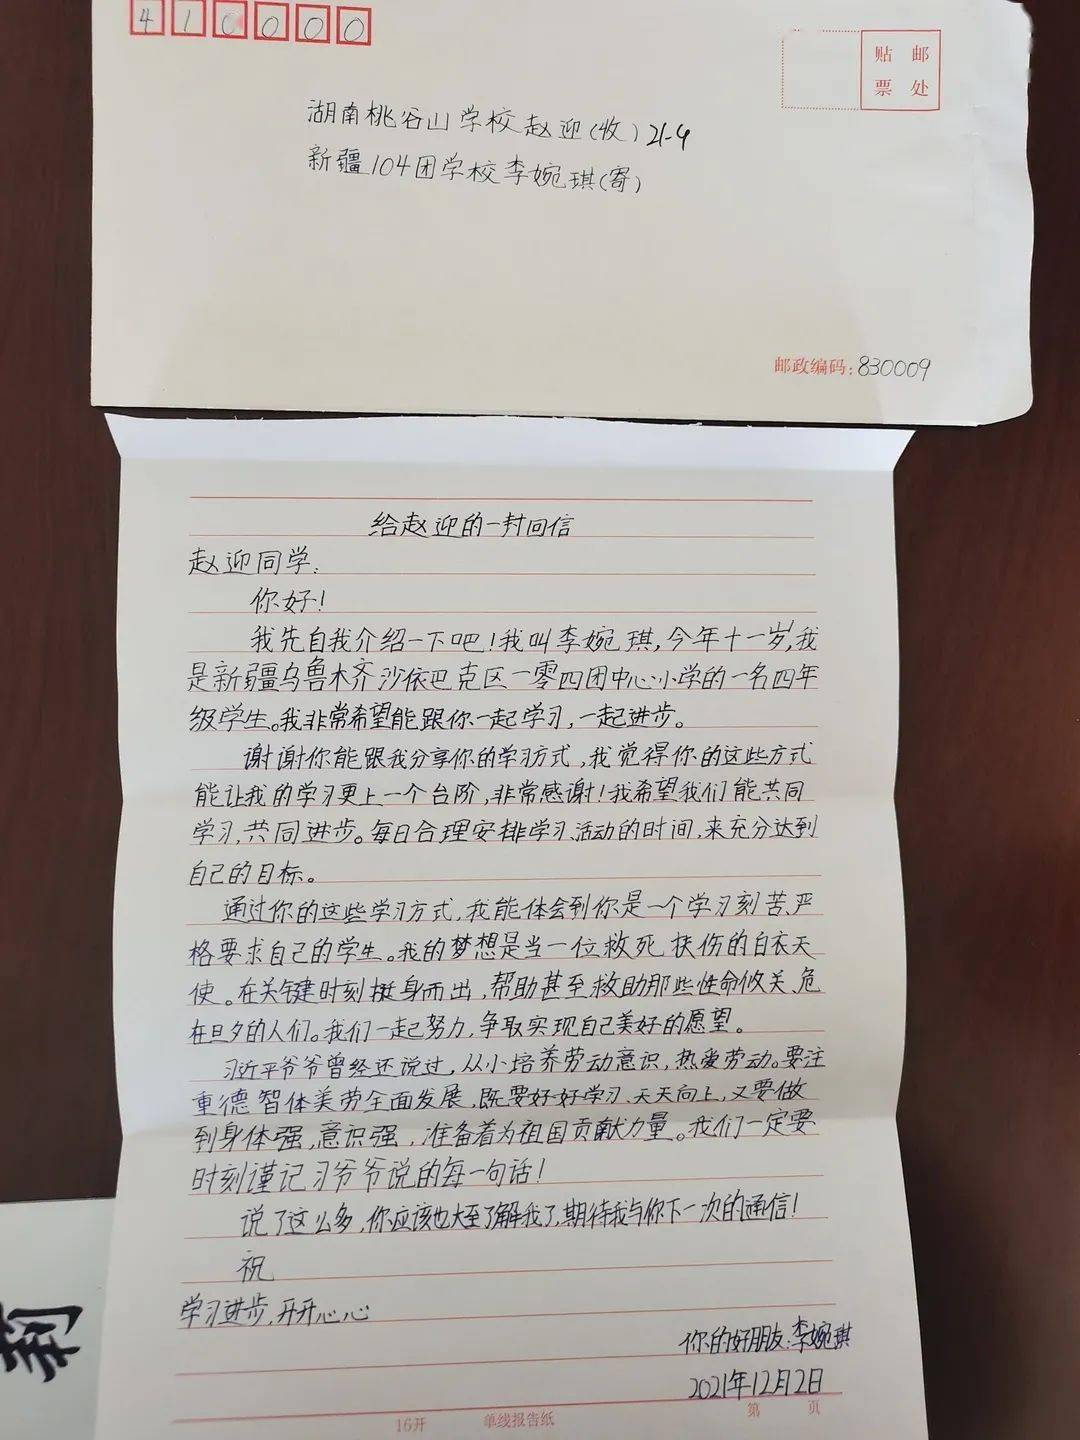 410000
贴邮
票处
湖南桃谷山学校赵迎(收)21-4
新疆104团学校李婉琪(寄)
邮政编码:830009
给赵迎的一封回信
赵迎同学:
你好!
我先自我介绍一下吧!我叫李婉琪,今年十一岁,我
是新疆乌鲁木齐沙依巴克区一零四团中心小学的一名四年
级学生。我非常希望能跟你一起学习,一起进步。
谢谢你能跟我分享你的学习方式,我觉得你的这些方式
能让我的学习更上一个台阶,非常感谢!我希望我们能共同
学习,共同进步。每日合理安排学习、活动的时间,来充分达到
自己的目标。
通过你的这些学习方式,我能体会到你是一个学习刻苦、严
格要求自己的学生。我的梦想是当一位救死扶伤的白衣天
使。在关键时刻挺身而出,帮助甚至救助那些性命攸关、危
在旦夕的人们。我们一起努力,争取实现自己美好的愿望。
习近平爷爷曾经还说过,从小培养劳动意识,热爱劳动。要注
重德智体美劳全面发展,既要好好学习、天天向上,又要做
到身体强,意识强,准备着为祖国贡献力量。我们一定要
时刻谨记习爷爷说的每一句话!
说了这么多,你应该也大至了解我了,期待我与你下一次的通信!
祝
学习进步,开开心心
你的好朋友:李婉琪
2021年12月2日
16开 单线报告纸 第 页